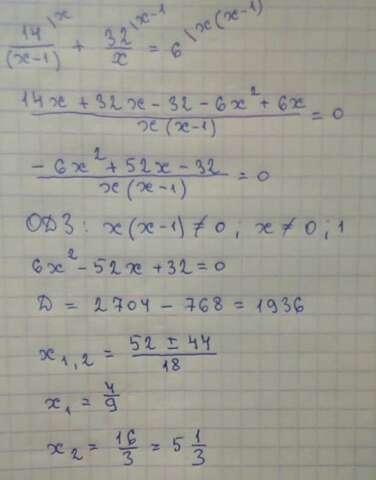 14\x/(x-1) + 32\x-1/x = 6\x(x-1)
14x + 32x - 32 - 6x² + 6x/x(x-1) = 0
-6x² + 52x - 32/x(x-1) = 0
ОДЗ: x(x-1) ≠ 0; x ≠ 0; 1
6x² - 52x + 32 = 0
D = 2704 - 768 = 1936
x₁,₂ = 52 ± 44/18
x₁ = 4/9
x₂ = 16/3 = 5 1/3